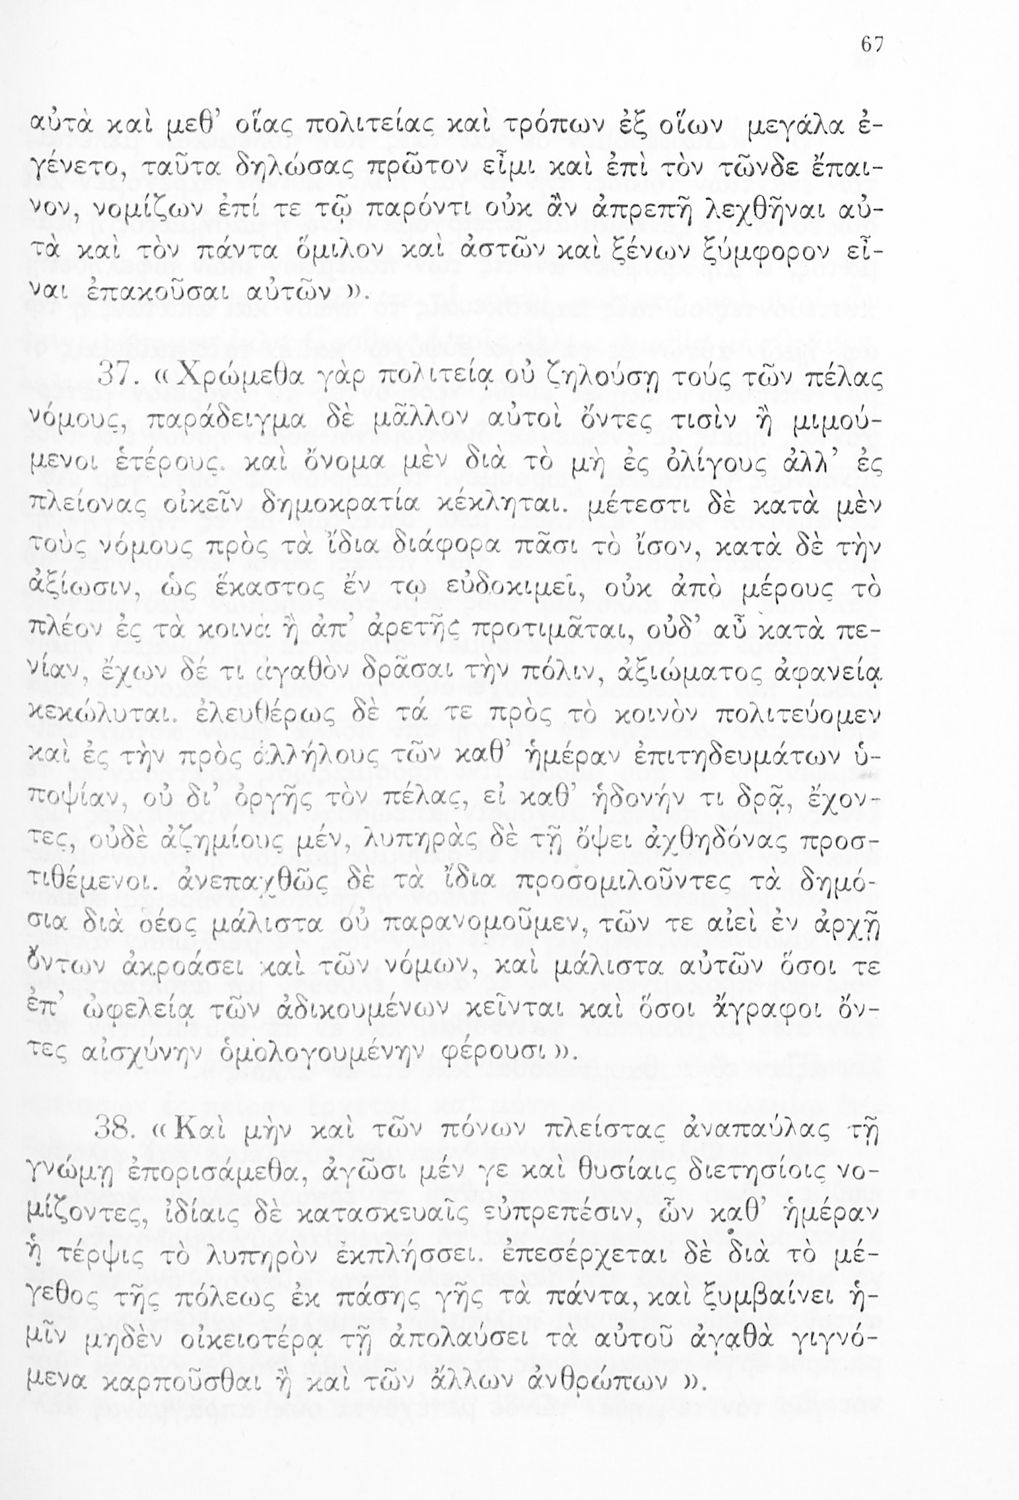 67
αὐτὰ καὶ μεθ’ οἵας πολιτείας καὶ τρόπων ἐξ οἵων μεγάλα ἐ-
γένετο, ταῦτα δηλώσας πρῶτον εἶμι καὶ ἐπὶ τὸν τῶνδε ἔπαι-
νον, νομίζων ἐπί τε τῷ παρόντι οὐκ ἂν ἀπρεπῆ λεχθῆναι αὐ-
τὰ καὶ τὸν πάντα ὅμιλον καὶ ἀστῶν καὶ ξένων ξύμφορον εἶ-
ναι ἐπακοῦσαι αὐτῶν ».
37. « Χρώμεθα γὰρ πολιτείᾳ οὐ ζηλούσῃ τοὺς τῶν πέλας
νόμους, παράδειγμα δὲ μᾶλλον αὐτοὶ ὄντες τισὶν ἢ μιμού-
μενοι ἑτέρους. καὶ ὄνομα μὲν διὰ τὸ μὴ ἐς ὀλίγους ἀλλ’ ἐς
πλείονας οἰκεῖν δημοκρατία κέκληται. μέτεστι δὲ κατὰ μὲν
τοὺς νόμους πρὸς τὰ ἴδια διάφορα πᾶσι τὸ ἴσον, κατὰ δὲ τὴν
ἀξίωσιν, ὡς ἕκαστος ἔν τῳ εὐδοκιμεῖ, οὐκ ἀπὸ μέρους τὸ
πλέον ἐς τὰ κοινὰ ἢ ἀπ’ ἀρετῆς προτιμᾶται, οὐδ’ αὖ κατὰ πε-
νίαν, ἔχων δέ τι ἀγαθὸν δρᾶσαι τὴν πόλιν, ἀξιώματος ἀφανείᾳ
κεκώλυται. ἐλευθέρως δὲ τά τε πρὸς τὸ κοινὸν πολιτεύομεν
καὶ ἐς τὴν πρὸς ἀλλήλους τῶν καθ’ ἡμέραν ἐπιτηδευμάτων ὑ-
ποψίαν, οὐ δι’ ὀργῆς τὸν πέλας, εἰ καθ’ ἡδονήν τι δρᾷ, ἔχον-
τες, οὐδὲ ἀζημίους μέν, λυπηρὰς δὲ τῇ ὄψει ἀχθηδόνας προσ-
τιθέμενοι. ἀνεπαχθῶς δὲ τὰ ἴδια προσομιλοῦντες τὰ δημό-
σια διὰ δέος μάλιστα οὐ παρανομοῦμεν, τῶν τε αἰεὶ ἐν ἀρχῇ
ὄντων ἀκροάσει καὶ τῶν νόμων, καὶ μάλιστα αὐτῶν ὅσοι τε
ἐπ’ ὠφελείᾳ τῶν ἀδικουμένων κεῖνται καὶ ὅσοι ἄγραφοι ὄν-
τες αἰσχύνην ὁμολογουμένην φέρουσι ».
38. « Καὶ μὴν καὶ τῶν πόνων πλείστας ἀναπαύλας τῇ
γνώμῃ ἐπορισάμεθα, ἀγῶσι μέν γε καὶ θυσίαις διετησίοις νο-
μίζοντες, ἰδίαις δὲ κατασκευαῖς εὐπρεπέσιν, ὧν καθ’ ἡμέραν
ἡ τέρψις τὸ λυπηρὸν ἐκπλήσσει. ἐπεσέρχεται δὲ διὰ τὸ μέ-
γεθος τῆς πόλεως ἐκ πάσης γῆς τὰ πάντα, καὶ ξυμβαίνει ἡ-
μῖν μηδὲν οἰκειοτέρᾳ τῇ ἀπολαύσει τὰ αὐτοῦ ἀγαθὰ γιγνό-
μενα καρποῦσθαι ἢ καὶ τῶν ἄλλων ἀνθρώπων ».